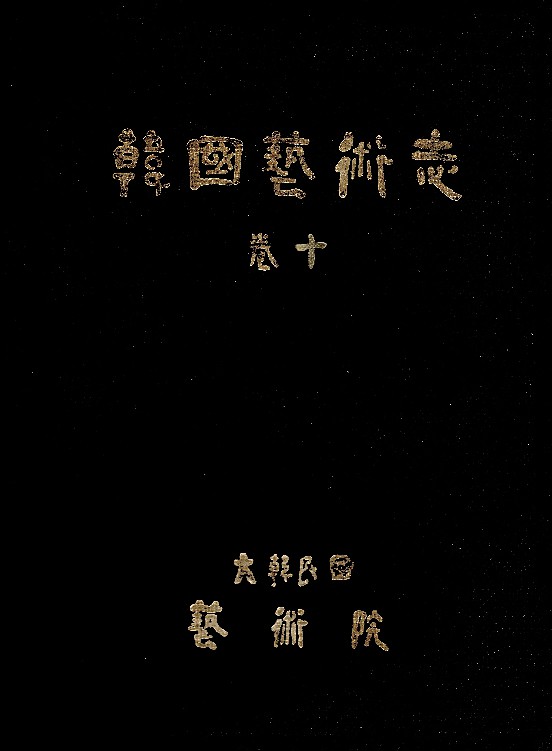 韓國藝術志
卷十
大韓民國
藝術院